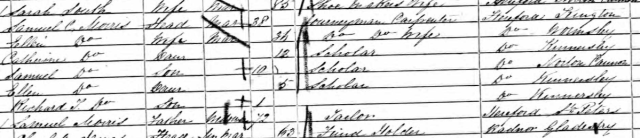 Sarah South Wife Mar 35 Shoe Makers Wife
Samuel C. Morris Head Mar 38 Journeyman Carpenter Hereford Kington
Ellen Do Wife Mar 34 Do Do Wife Do
Catherine Do Daur 12 Scholar Do Kinnersley
Samuel Do Son 10 Scholar Do Norton Cannon
Ellen Do Daur 5 Scholar Do Kinnersley
Richard T. Do Son 1 Do Kinnersley
Samuel Morris Father 72 Tailor Hereford St Peters
Head 63 Fund Holder Radnor Gladestry